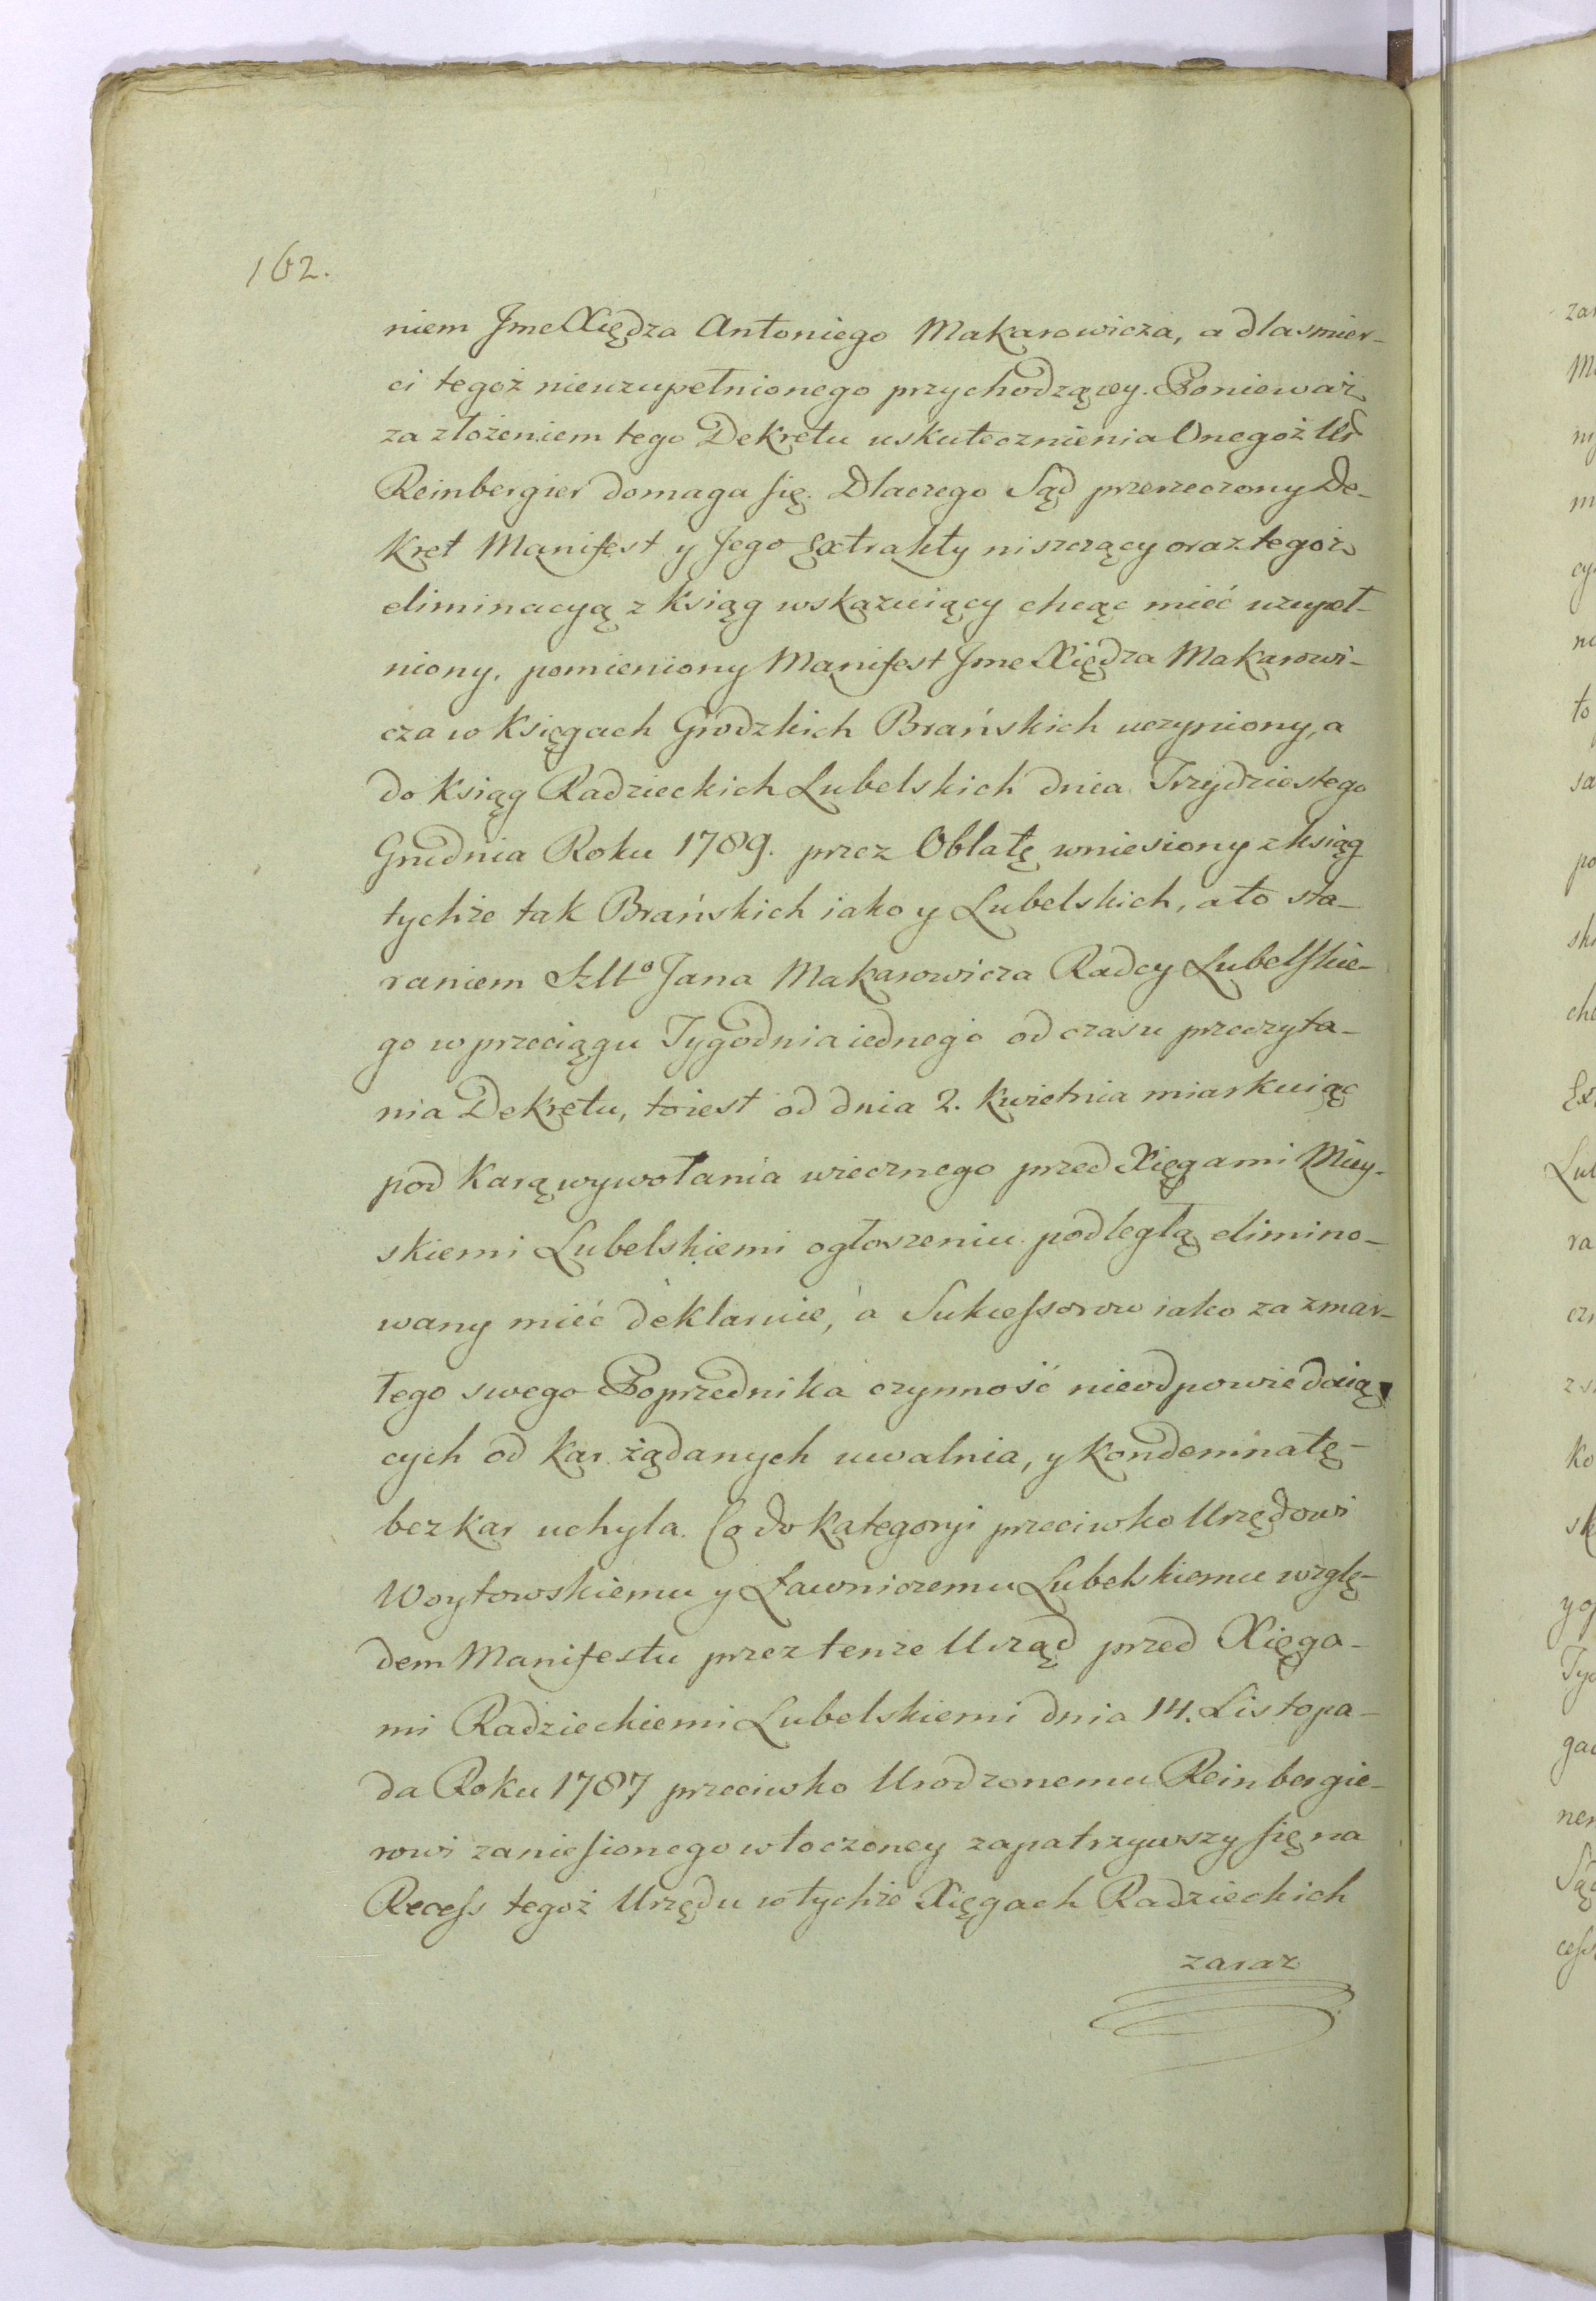 162.
niem Jme Xiędza Antoniego Makarowicza, a dla smier-
ci tegoż nieuzupełnionego przychodzącey. Ponieważ
za złożeniem tego Dekretu uskutecznienia Onegoż Ur
Reinbergier domaga się. Dlaczego Sąd przerzeczony De-
kret Manifest y Jego Extrakty niszczący oraz tegoż
eliminacyą z Ksiąg wskazuiący chcąc mieć uzupeł-
niony, pomieniony Manifest Jme Xiędza Makarowi-
cza w Księgach Grodzkich Brańskich uczyniony, a
do Ksiąg Radzieckich Lubelskich dnia Trzydziestego
Grudnia Roku 1789. przez Oblatę wniesiony z ksiąg
tychże tak Brańskich iako y Lubelskich, a to sta-
raniem Szltº Jana Makarowicza Radcy Lubelskie-
go w przeciągu Tygodnia iednego od czasu przeczyta-
nia Dekretu, toiest od dnia 2. Kwietnia miarkuiąc
pod karą wywołania wiecznego przed Xięgami Miey-
skiemi Lubelskiemi ogłoszeniu podległą elimino-
wany mieć deklaruie, a Sukcessorow iako za zmar-
łego swego Poprzednika czynność nieodpowiedaią
cych od kar żądanych uwalnia, y kondemnatę
bez kar uchyla. Co do kategoryi przeciwko Urzędowi
Woytowskiemu y Ławniczemu Lubelskiemu wzglę-
dem Manifestu przez tenże Urząd przed Xięga-
mi Radzieckiemi Lubelskiemi dnia 14. Listopa-
da Roku 1787 przeciwko Urodzonemu Reinbergie-
rowi zaniesionego wtoczoney zapatrzywszy się na
Recess tegoż Urzędu w tychże Xięgach Radzieckich
zaraz